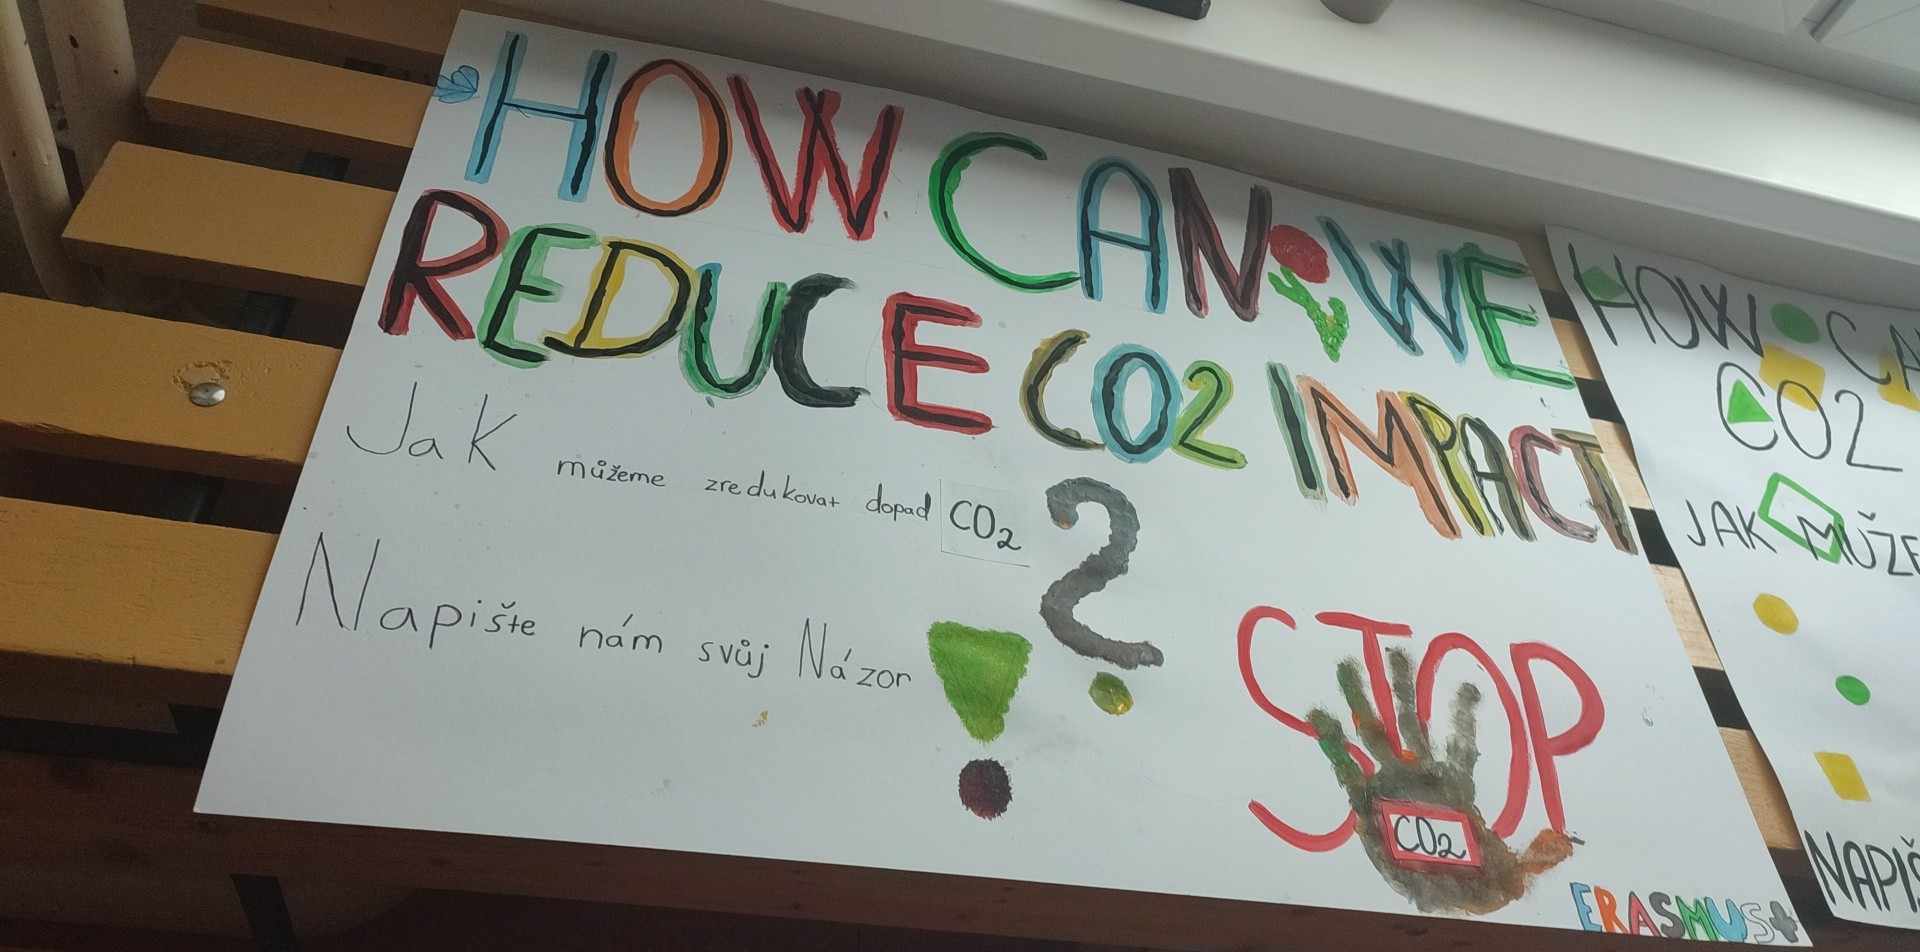 HOW CAN WE
REDUCE CO2 IMPACT
Jak můžeme zredukovat dopad CO2 ?
Napište nám svůj Názor !
STOP
CO2
ERASMUS+
HOW CA
CO2
JAK MŮŽE
NAPIŠ